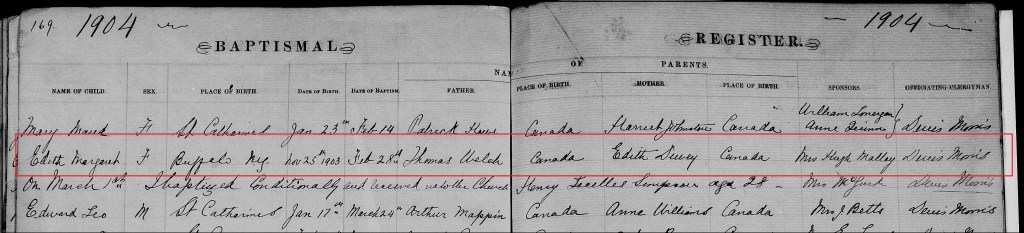 169. 1904 — 1904 —
BAPTISMAL REGISTER.
NAM OF PARENTS.
NAME OF CHILD. SEX. PLACE OF BIRTH. DATE OF BIRTH. DATE OF BAPTISM. FATHER. PLACE OF BIRTH. MOTHER. PLACE OF BIRTH. SPONSORS. OFFICIATING CLERGYMAN.
William Lonergan
Mary Maud F St Catharines Jan 23rd Feb 14 Patrick Canada Harriet Johnston Canada Anne } Denis Morris
Edith Margaret F Buffalo N.Y. Nov 25th 1903 Feb 28th Thomas Welch Canada Edith Dewey Canada Mrs Hugh Malley Denis Morris
On March 1st I baptized Conditionally and received into the Church Henry age 28 — Mrs Denis Morris
Edward Leo M St Catharines Jan 17th March 24th Arthur Mappin Canada Anne Williams Canada Mrs J. Betts Denis Morris